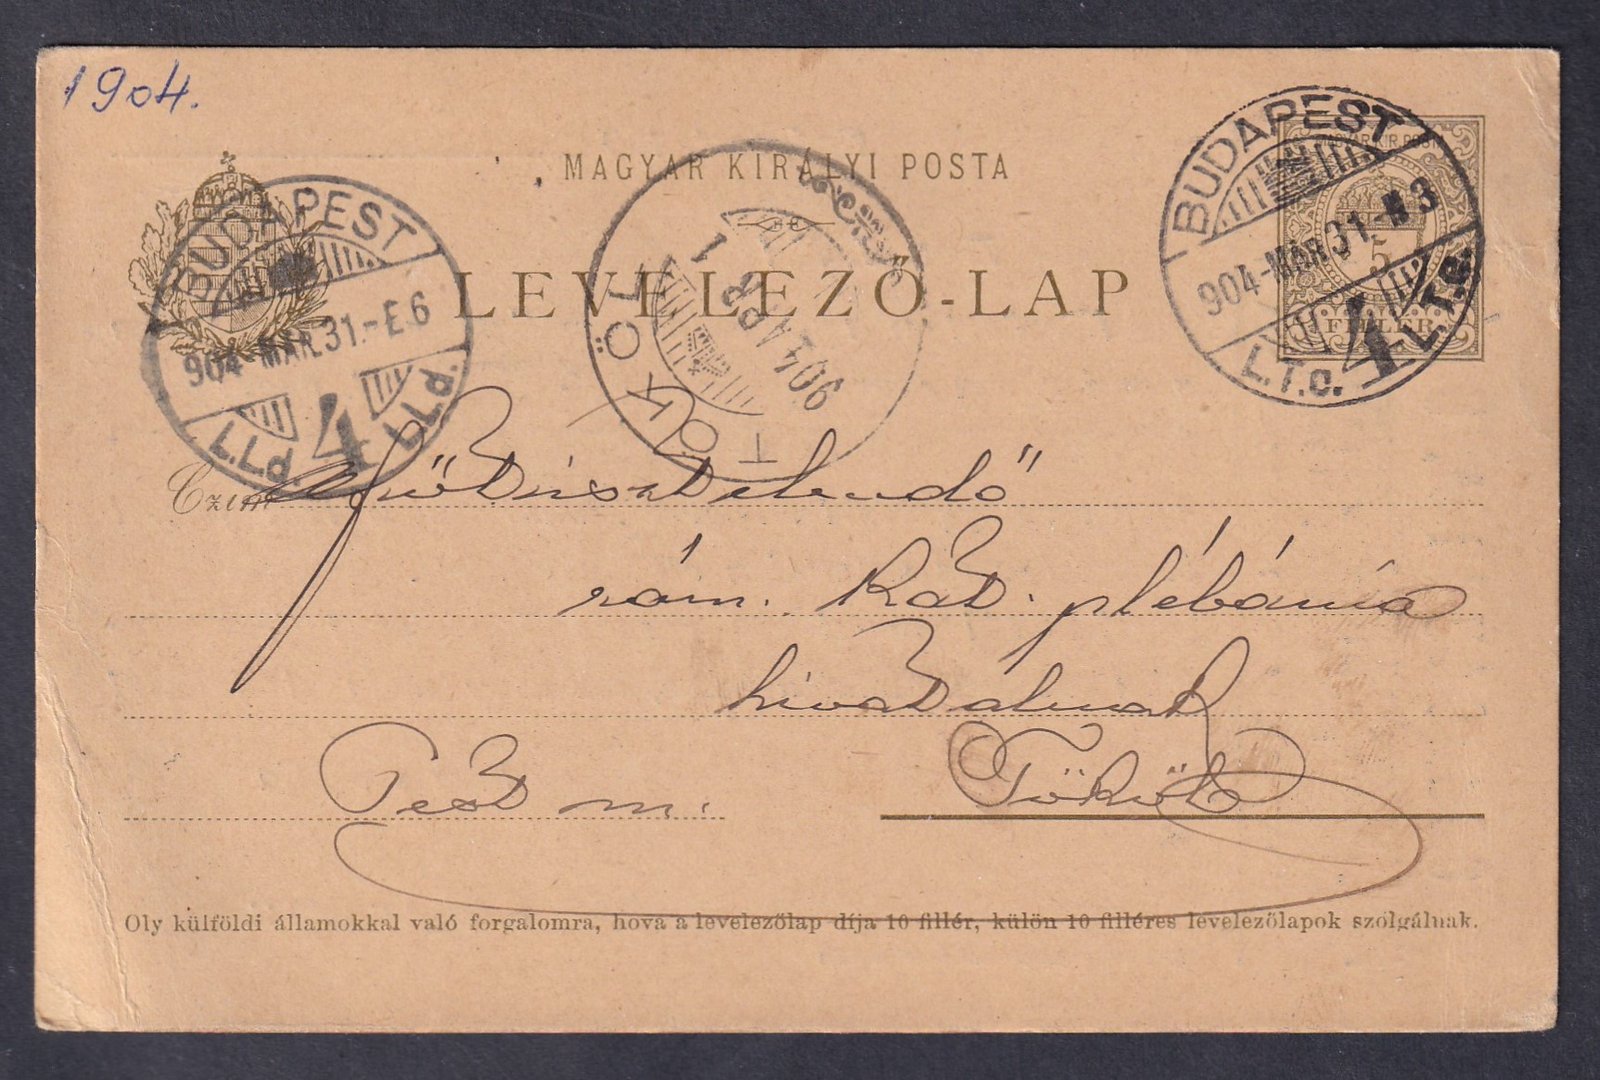 1904.
MAGYAR KIRÁLYI POSTA
LEVELEZŐ-LAP
BUDAPEST
904-MÁR.31.-E6
L.Ld. 4 L.Ld.
TÖKÖL
904 ÁPR 1
BUDAPEST
904-MÁR 31-N3
L.T.c. 4 L.T.c.
MAGYAR KIR. POSTA
5
FILLÉR
Czím Főtisztelendő
róm. Kat. plébánia
hivatalnak
Pest m. Tököl
Oly külföldi államokkal való forgalomra, hova a levelezőlap díja 10 fillér, külön 10 filléres levelezőlapok szolgálnak.